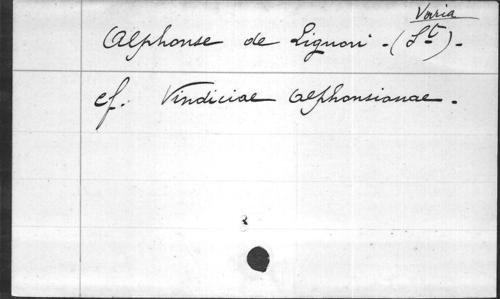 Varia
Alphonse de Liguori - (St) -
cf. Vindiciae Alphonsianae.